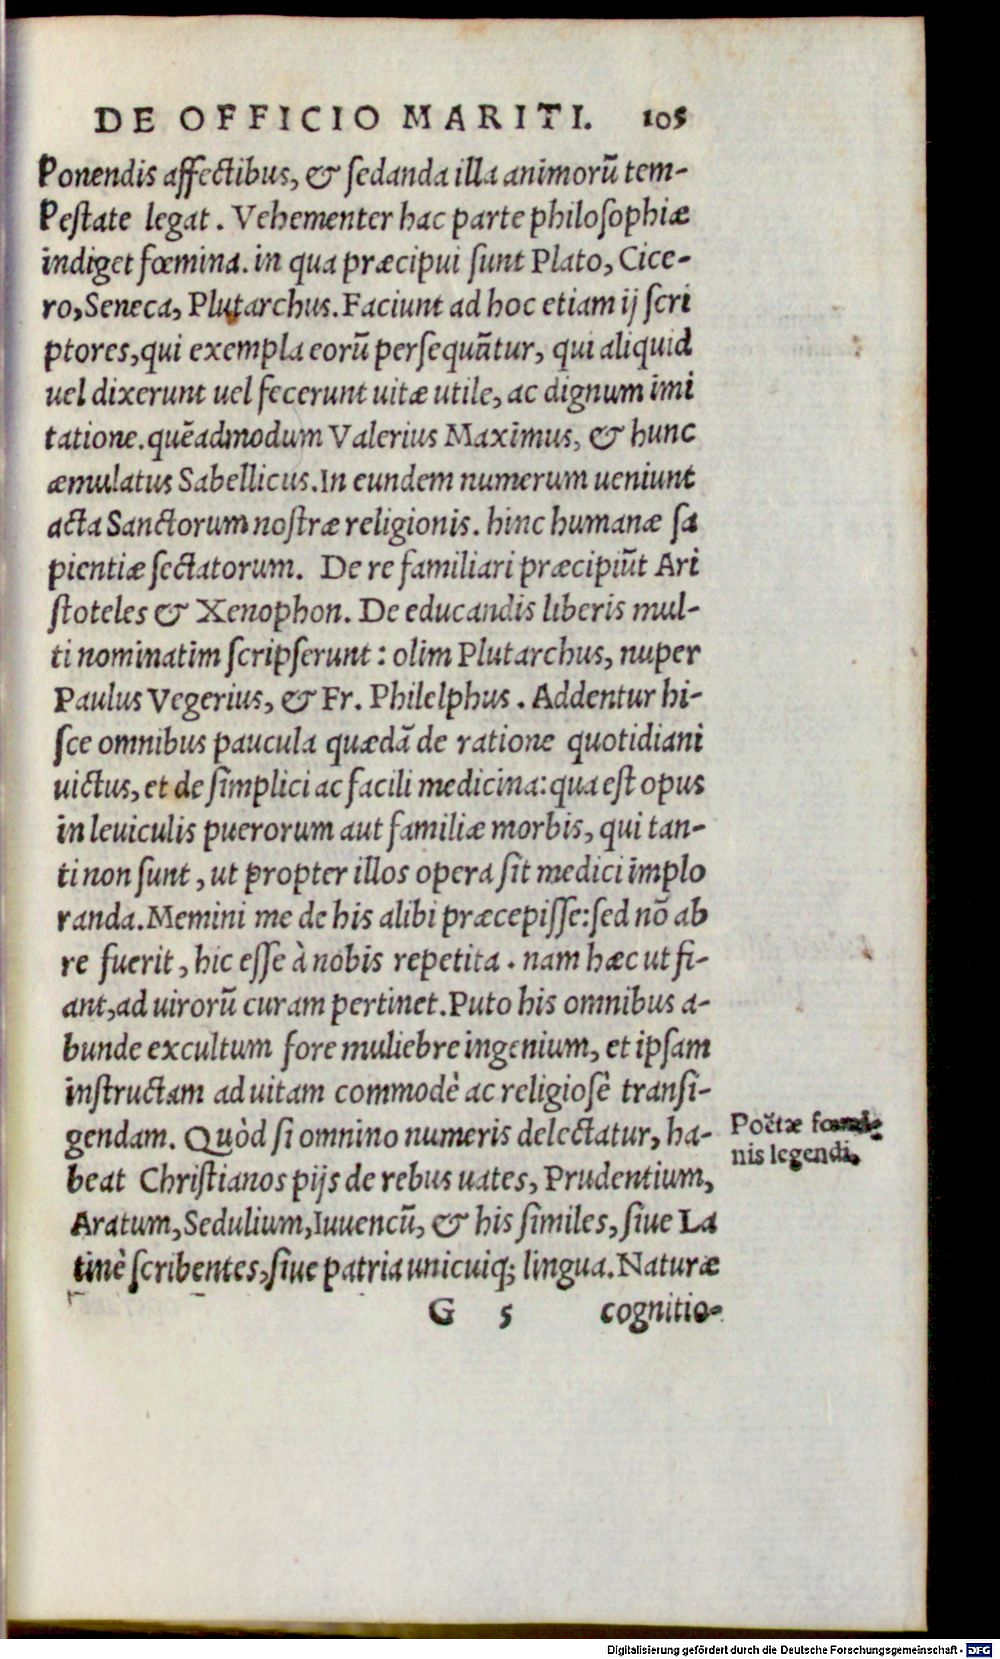 DE OFFICIO MARITI. 105
Ponendis affectibus, & ſedanda illa animorū tem-
Peſtate legat. Vehementer hac parte philoſophiæ
indiget fœmina. in qua præcipui ſunt Plato, Cice-
ro, Seneca, Plutarchus. Faciunt ad hoc etiam ij ſcri
ptores, qui exempla eorū perſequūtur, qui aliquid
uel dixerunt uel fecerunt uitæ utile, ac dignum imi
tatione. quēadmodum Valerius Maximus, & hunc
æmulatus Sabellicus. In eundem numerum ueniunt
acta Sanctorum noſtræ religionis. hinc humanæ ſa
pientiæ ſectatorum. De re familiari præcipiūt Ari
ſtoteles & Xenophon. De educandis liberis mul-
ti nominatim ſcripſerunt: olim Plutarchus, nuper
Paulus Vegerius, & Fr. Philelphus. Addentur hi-
ſce omnibus paucula quædā de ratione quotidiani
uictus, et de ſimplici ac facili medicina: qua eſt opus
in leuiculis puerorum aut familiæ morbis, qui tan-
ti non ſunt, ut propter illos opera ſit medici implo
randa. Memini me de his alibi præcepiſſe: ſed nō ab
re fuerit, hic eſſe à nobis repetita. nam hæc ut fi-
ant, ad uirorū curam pertinet. Puto his omnibus a-
bunde excultum fore muliebre ingenium, et ipſam
inſtructam ad uitam commodè ac religioſè tranſi-
gendam. Quòd ſi omnino numeris delectatur, ha-
beat Chriſtianos pijs de rebus uates, Prudentium,
Aratum, Sedulium, Iuuencū, & his ſimiles, ſiue La
tinè ſcribentes, ſiue patria unicuiq; lingua. Naturæ
G 5 cognitio-
Poëtæ fœmi-
nis legendi.
Digitalisierung gefördert durch die Deutsche Forschungsgemeinschaft - DFG